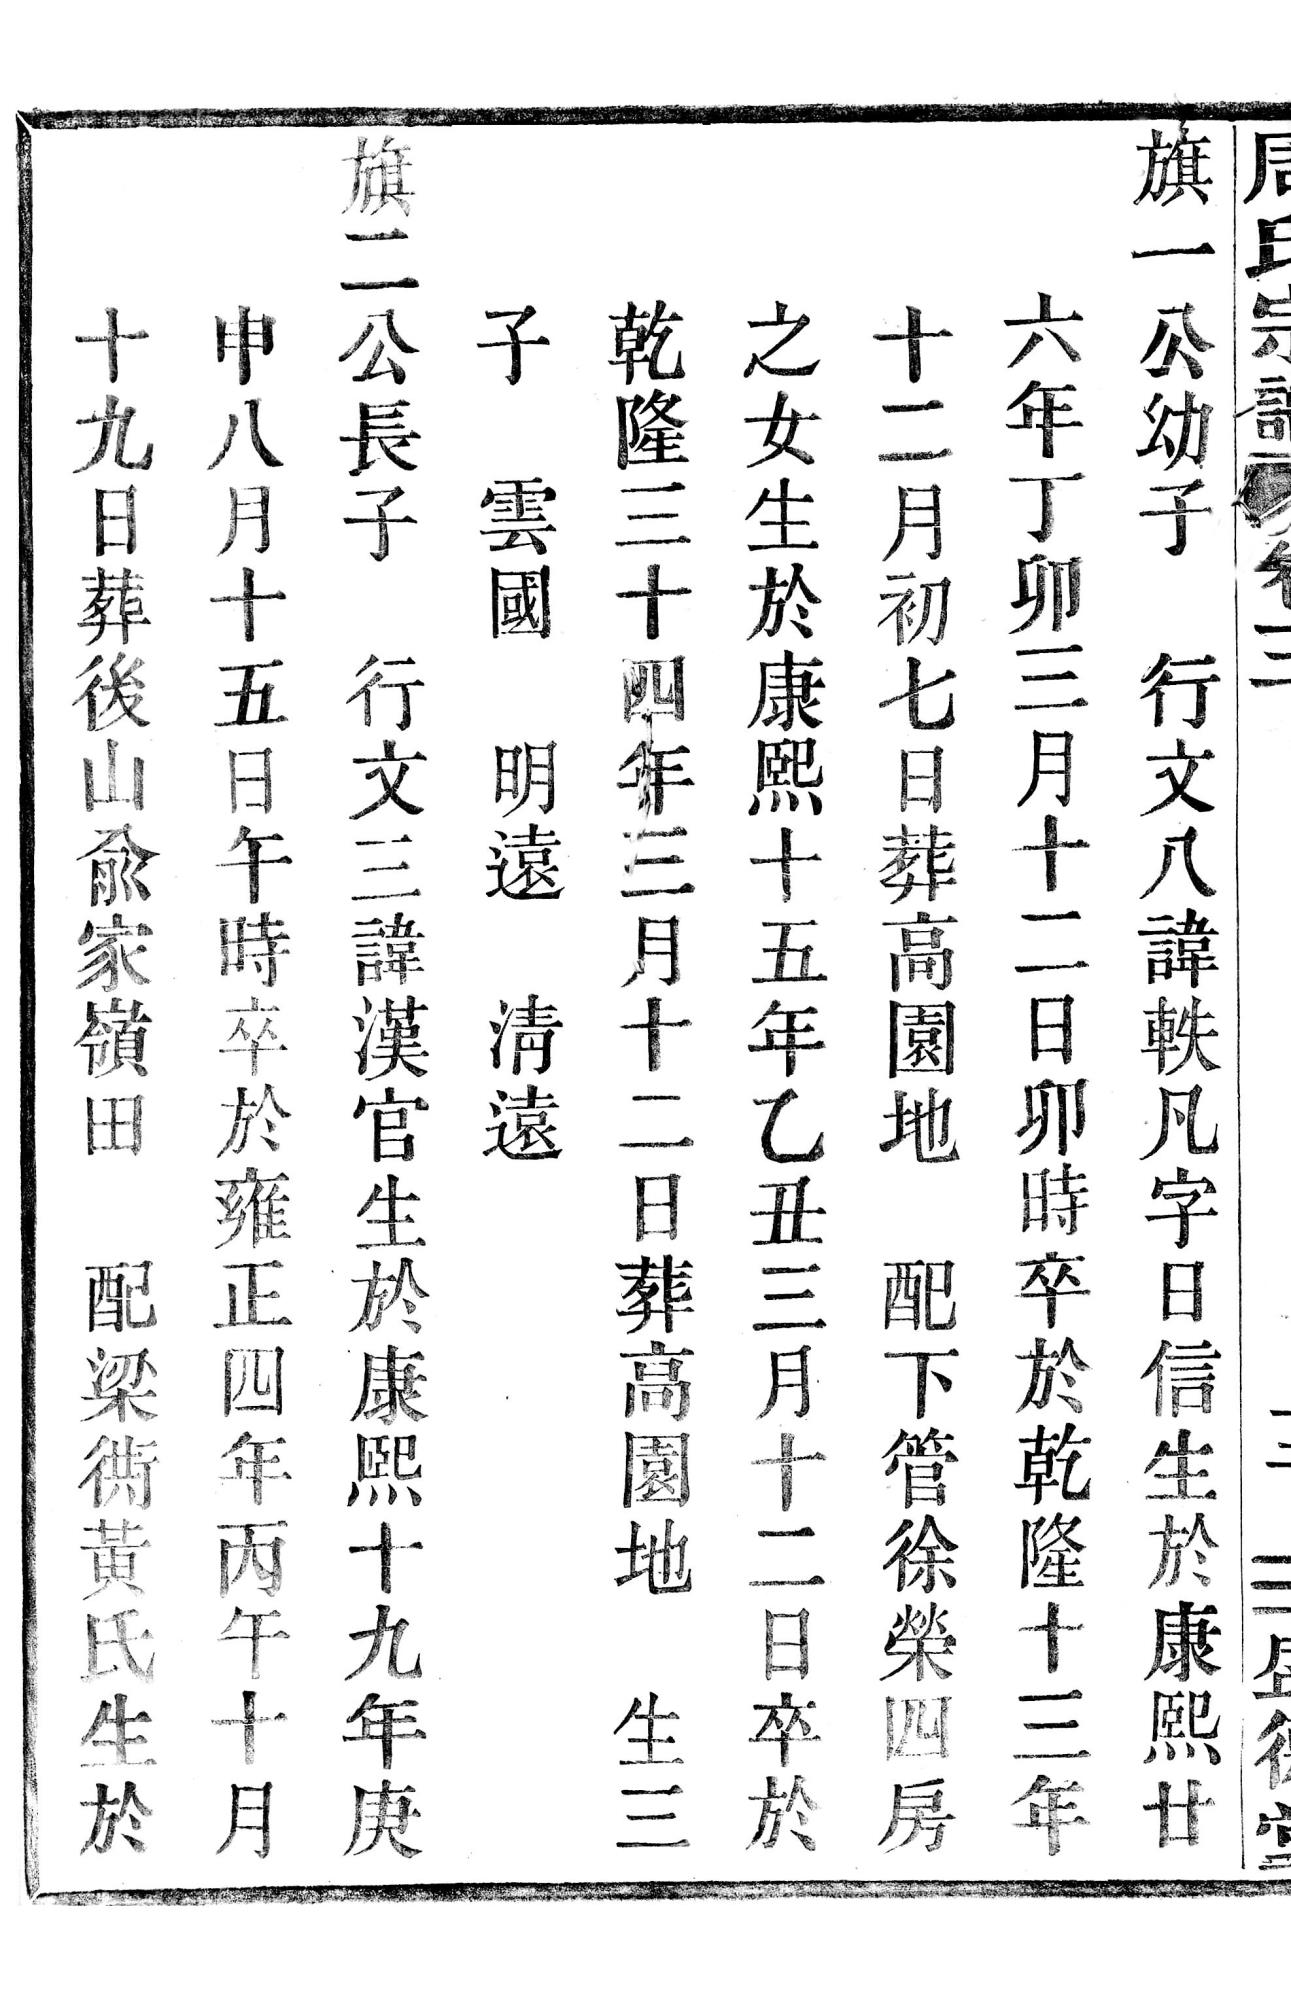 周氏宗譜 卷三
旗一公幼子 行文八諱軼凡字日信生於康熙廿
六年丁卯三月十二日卯時卒於乾隆十三年
十二月初七日葬高園地 配下管徐榮四房
之女生於康熙十五年乙丑三月十二日卒於
乾隆三十四年三月十二日葬高園地 生三
子 雲國 明遠 清遠
旗二公長子 行文三諱漢官生於康熙十九年庚
申八月十五日午時卒於雍正四年丙午十月
十九日葬後山俞家嶺田 配梁衖黃氏生於